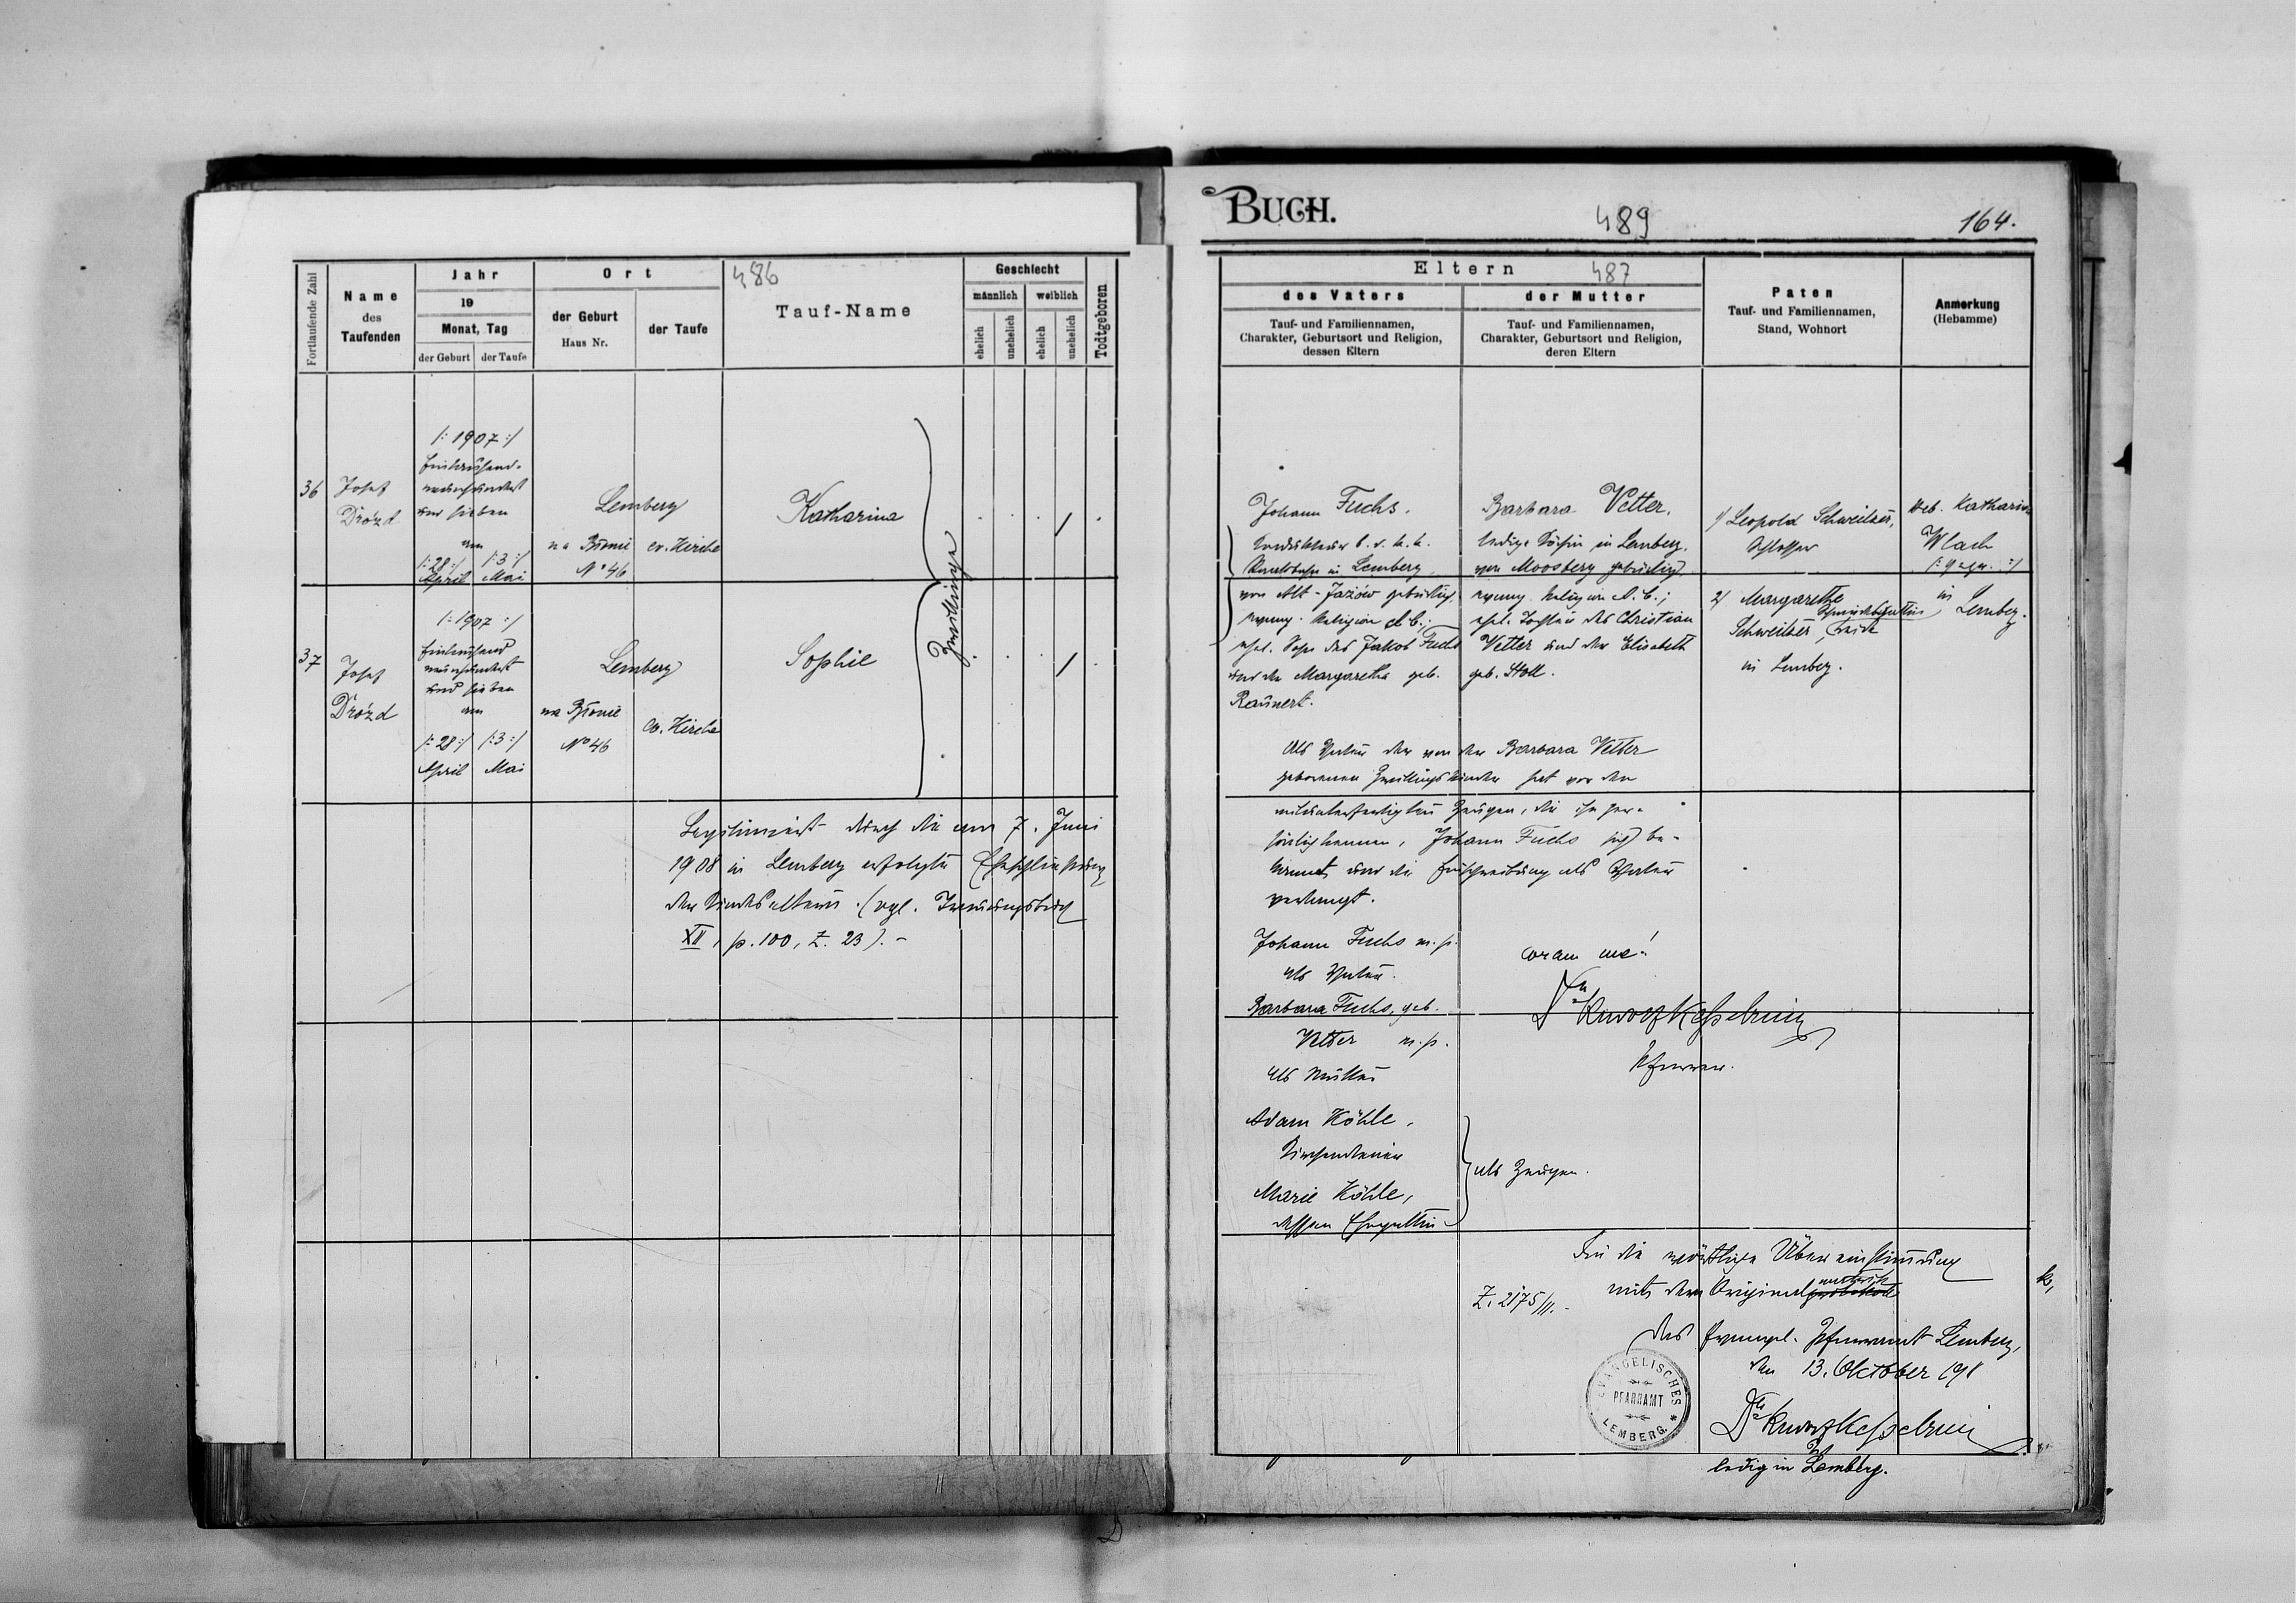 BUCH.
489
164.
Fortlaufende Zahl
Name
des
Taufenden
Jahr
19
Monat, Tag
der Geburt
der Taufe
Ort
der Geburt
Haus Nr.
der Taufe
486
Tauf-Name
Geschlecht
männlich
weiblich
ehelich
unehelich
ehelich
unehelich
Todtgeboren
Eltern
487
des Vaters
Tauf- und Familiennamen,
Charakter, Geburtsort und Religion,
dessen Eltern
der Mutter
Tauf- und Familiennamen,
Charakter, Geburtsort und Religion,
deren Eltern
Paten
Tauf- und Familiennamen,
Stand, Wohnort
Anmerkung
(Hebamme)
36
Josef
Drózd
/: 1907 :/
Eintausend-
neunhundert
und sieben
am
/: 28 :/
April
/: 3 :/
Mai
Lemberg
na Błonie
No 46
ev. Kirche
Katharina
Zwillinge
Johann Fuchs.
Kondukteur b. d. k. k.
Staatsbahn in Lemberg,
von Alt-Jazów gebürtig,
evang. Religion A. B.;
ehel. Sohn des Jakob Fuchs
und der Margaretha geb.
Raunert.
Barbara Vetter,
ledige Köchin in Lemberg,
von Moosberg gebürtig,
evang. Religion A. B.;
ehel. Tochter des Christian
Vetter und der Elisabeth
geb. Stoll.
1/ Leopold Schweitzer,
Schlosser
2/ Margarethe
Schweitzer, beide
in Lemberg.
Heb. Katharina
Wlach
in Lemberg.
37
Josef
Drózd
/: 1907 :/
Eintausend
neunhundert
und sieben
am
/: 28 :/
April
/: 3 :/
Mai
Lemberg
na Błonie
No 46
ev. Kirche
Sophie
Legitimiert durch die am 7. Juni
1908 in Lemberg erfolgte Eheschließung
der Kindeseltern. (vgl. Trauungsbuch
XII, p. 100, Z. 23). -
Als Vater der von der Barbara Vetter
geborenen Zwillingskinder hat vor den
mitunterfertigten Zeugen, die ihn per-
sönlich kennen, Johann Fuchs sich be-
kannt und die Einschreibung als Vater
verlangt.
Johann Fuchs m. p.
als Vater.
Barbara Fuchs, geb.
Vetter m. p.
als Mutter
coram me!
Dr Kesselring
Pfarrer.
Adam Köhle,
Kirchendiener
Marie Köhle,
dessen Ehegattin
als Zeugen.
Für die wörtliche Übereinstimmung
mit dem Original
Z. 2175/11.
Das Evangel. Pfarramt Lemberg,
den 13. Oktober 1911
EVANGELISCHES
PFARRAMT
LEMBERG
Dr Kesselring
ledig in Lemberg.